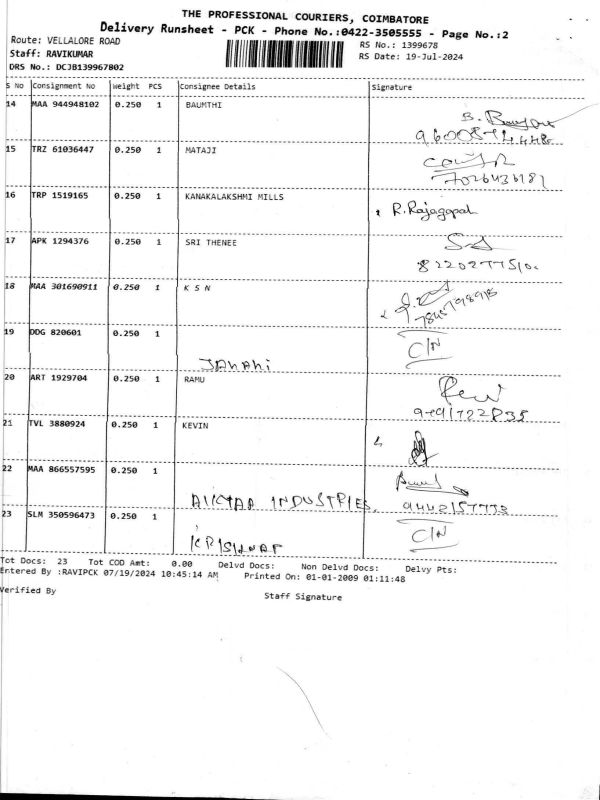 THE PROFESSIONAL COURIERS, COIMBATORE
Delivery Runsheet - PCK - Phone No.:0422-3505555 - Page No.:2
Route: VELLALORE ROAD
RS No.: 1399678
Staff: RAVIKUMAR
RS Date: 19-Jul-2024
DRS No.: DCJB139967802
S No Consignment No Weight PCS Consignee Details Signature
14 MAA 944948102 0.250 1 BAUMTHI
15 TRZ 61036447 0.250 1 MATAJI
7026436181
16 TRP 1519165 0.250 1 KANAKALAKSHMI MILLS R.Rajagopal
17 APK 1294376 0.250 1 SRI THENEE
18 MAA 301690911 0.250 1 K S N
19 DDG 820601 0.250 1 C/N
JAnAni
20 ART 1929704 0.250 1 RAMU
21 TVL 3880924 0.250 1 KEVIN
22 MAA 866557595 0.250 1
INDUSTRIES
23 SLM 350596473 0.250 1 C/N
Tot Docs: 23 Tot COD Amt: 0.00 Delvd Docs: Non Delvd Docs: Delvy Pts:
Entered By :RAVIPCK 07/19/2024 10:45:14 AM Printed On: 01-01-2009 01:11:48
Verified By Staff Signature